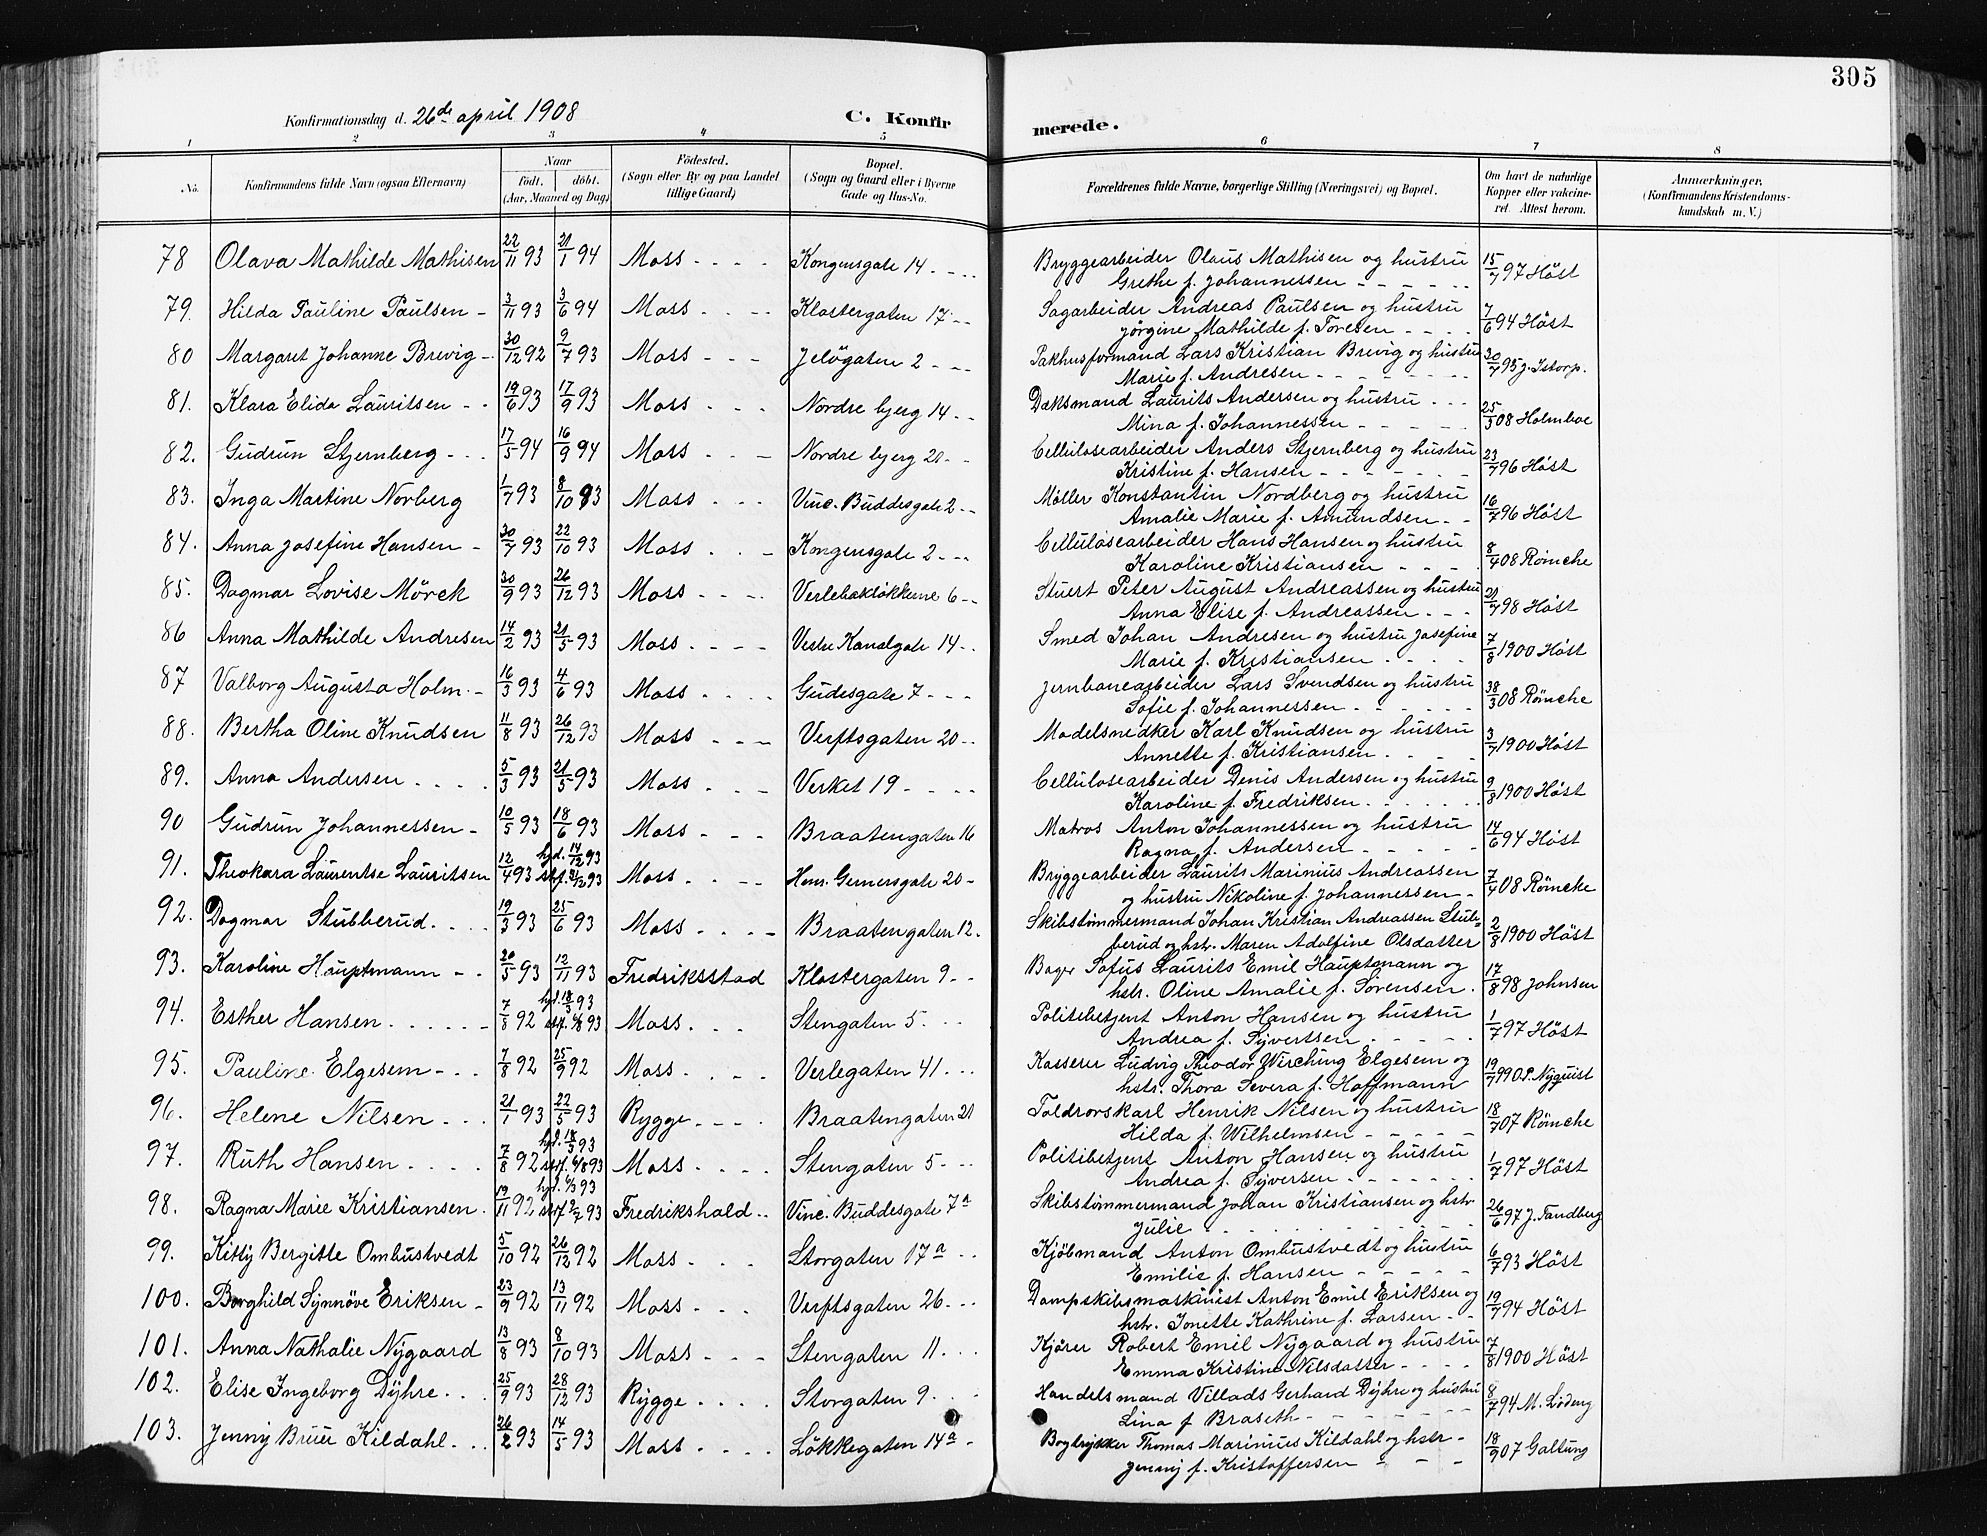 305
Konfirmationsdag d. 26de april 1908
C. Konfirmerede.
1 2 3 4 5 6 7 8
No. Konfirmandens fulde Navn (ogsaa Efternavn) Naar født. døbt. (Aar, Maaned og Dag) Födested. (Sogn eller By og paa Landet tillige Gaard) Bopæl. (Sogn og Gaard eller i Byerne Gade og Hus-No. Forældrenes fulde Navne, borgerlige Stilling (Næringsvei) og Bopæl. Om havt de naturlige Kopper eller vakcineret. Attest herom. Anmærkninger. (Konfirmandens Kristendomskundskab m. V.)
78 Olava Mathilde Mathisen 22/11 93 21/1 94 Moss Kongensgate 14 Bryggearbeider Olaus Mathisen og hustru 15/7 97 Höst
Grethe f. Johannessen
79. Hilda Pauline Paulsen 3/11 93 3/6 94 Moss Klostergaten 17 Sagarbeider Andreas Paulsen og hustru 7/6 94 Höst
Jørgine Mathilde f. Toresen
80 Margaret Johanne Brevig 30/12 92 9/7 93 Moss Jeløgaten 2 Pakhusformand Lars Kristian Brevig og hustru 30/7 95 J. Istorp.
Marie f. Andresen
81. Klara Elida Lauritsen 19/6 93 17/9 93 Moss Nordre bjerg 14 Dæksmand Laurits Andersen og hustru 25/3 08 Holmboe
Mina f. Johannessen
82. Gudrun Stjernberg 17/5 94 16/9 94 Moss Nordre bjerg 20 Cellulosearbeider Anders Stjernberg og hustru 23/7 96 Höst
Kristine f. Hansen
83. Inga Martine Norberg 1/7 93 8/10 93 Moss Vinc. Buddesgate 2 Møller Konstantin Nordberg og hustru 16/7 96 Höst
Amalie Marie f. Amundsen
84. Anna Josefine Hansen 30/7 93 22/10 93 Moss Kongensgate 2 Cellulosearbeider Hans Hansen og hustru 8/4 08 Rømcke
Karoline Kristiansen
85. Dagmar Lovise Mörck 30/9 93 26/12 93 Moss Verlebakløkkerne 6 Stuert Peter August Andreassen og hustru 21/7 98 Höst
Anna Elise f. Andreassen
86 Anna Mathilde Andresen 14/2 93 21/5 93 Moss Vestre Kanalgate 14 Smed Johan Andresen og hustru Josefine 7/8 1900 Höst
Marie f. Kristiansen
87 Valborg Augusta Holm 16/3 93 4/6 93 Moss Gudesgate 7 Jernbanearbeider Lars Svendsen og hustru 38/3 08 Rømcke
Sofie f. Johannessen
88. Bertha Oline Knudsen 11/8 93 26/12 93 Moss Verftsgaten 20 Modelsnedker Karl Knudsen og hustru 3/7 1900 Höst
Annette f. Kristiansen
89. Anna Andersen 5/3 93 21/5 93 Moss Verket 19 Cellulosearbeider Denis Andersen og hustru 9/8 1900 Höst
Karoline f. Fredriksen
90 Gudrun Johannessen 10/5 93 18/6 93 Moss Braatengaten 16 Matros Anton Johannessen og hustru 14/6 94 Höst
Ragna f. Andersen
91. Theokara Laurentse Lauritsen 12/4 93 hjd. 14/12 93 stf. 31/12 93 Moss Henr. Gernersgate 20 Bryggearbeider Laurits Marinius Andreassen 7/4 08 Rømcke
og hustru Nikoline f. Johannessen
92. Dagmar Stubberud 19/3 93 25/6 93 Moss Braatengaten 12. Skibstømmermand Johan Kristian Andreassen Stub- 2/8 1900 Höst
berud og hstr. Maren Adolfine Olsdatter
93. Karoline Hauptmann 20/5 93 12/11 93 Fredriksstad Klostergaten 9 Bager Sofus Laurits Emil Hauptmann og 17/8 98 Johnsen
hstr. Oline Amalie f. Sørensen
94. Esther Hansen 7/8 92 hjd. 18/3 93 stf. 6/8 93 Moss Stengaten 5 Politibetjent Anton Hansen og hustru 1/7 97 Höst
Andrea f. Syvertsen
95. Pauline Elgesem 7/8 92 25/9 92 Moss Verlegaten 41 Kasserer Ludvig Theodor Wirching Elgesem og 19/7 99 O. P. Nyquist
hstr. Thora Severa f. Hoffmann
96. Helene Nilsen 21/1 93 22/5 93 Rygge Braatengaten 21 Toldrorskarl Henrik Nilsen og hustru 18/7 07 Rømcke
Hilda f. Wilhelmsen
97. Ruth Hansen 7/8 92 hjd. 18/3 93 stf. 6/8 93 Moss Stengaten 5 Politibetjent Anton Hansen og hustru 1/7 97 Höst
Andrea f. Syversen
98. Ragna Marie Kristiansen 19/11 92 hjd. 6/3 93 stf. 2/7 93 Fredrikshald Vinc. Buddesgate 7a Skibstømmermand Johan Kristiansen og hstr 26/6 97 J. Tandberg
Julie
99. Kitty Bergitte Ombustvedt 5/10 92 26/12 92 Moss Storgaten 17a Kjøbmand Anton Ombustvedt og hustru 6/7 93 Höst
Emilie f. Hansen
100. Borghild Synnöve Eriksen 23/9 92 13/11 92 Moss Verftsgaten 26 Dampskibsmaskinist Anton Emil Eriksen og 19/7 94 Höst
hstr. Jonette Kathrine f. Larsen
101. Anna Nathalie Nygaard 13/8 93 8/10 93 Moss Stengaten 11 Kjører Robert Emil Nygaard og hustru 7/8 1900 Höst
Emma Kristine Nilsdatter
102. Elise Ingeborg Dyhre 25/9 93 28/12 93 Rygge Storgaten 9 Handelsmand Villads Gerhard Dyhre og hustru 8/7 94 M. Lödeng
Lina f Braseth
103. Jenny Bruu Kildahl 26/2 93 14/5 93 Moss Løkkegaten 14a Bogtrykker Thomas Marinius Kildahl og hstr 18/9 07 Galtung
Jenny f. Kristoffersen